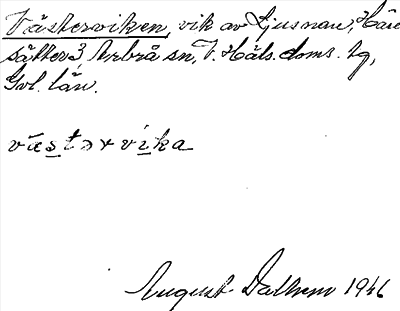 Västerviken, vik av Ljusnan, Häre
sätter 3, Arbrå sn, V. Häls. doms. tg,
Gvl. län.
västərvika
August Dalhem 1946